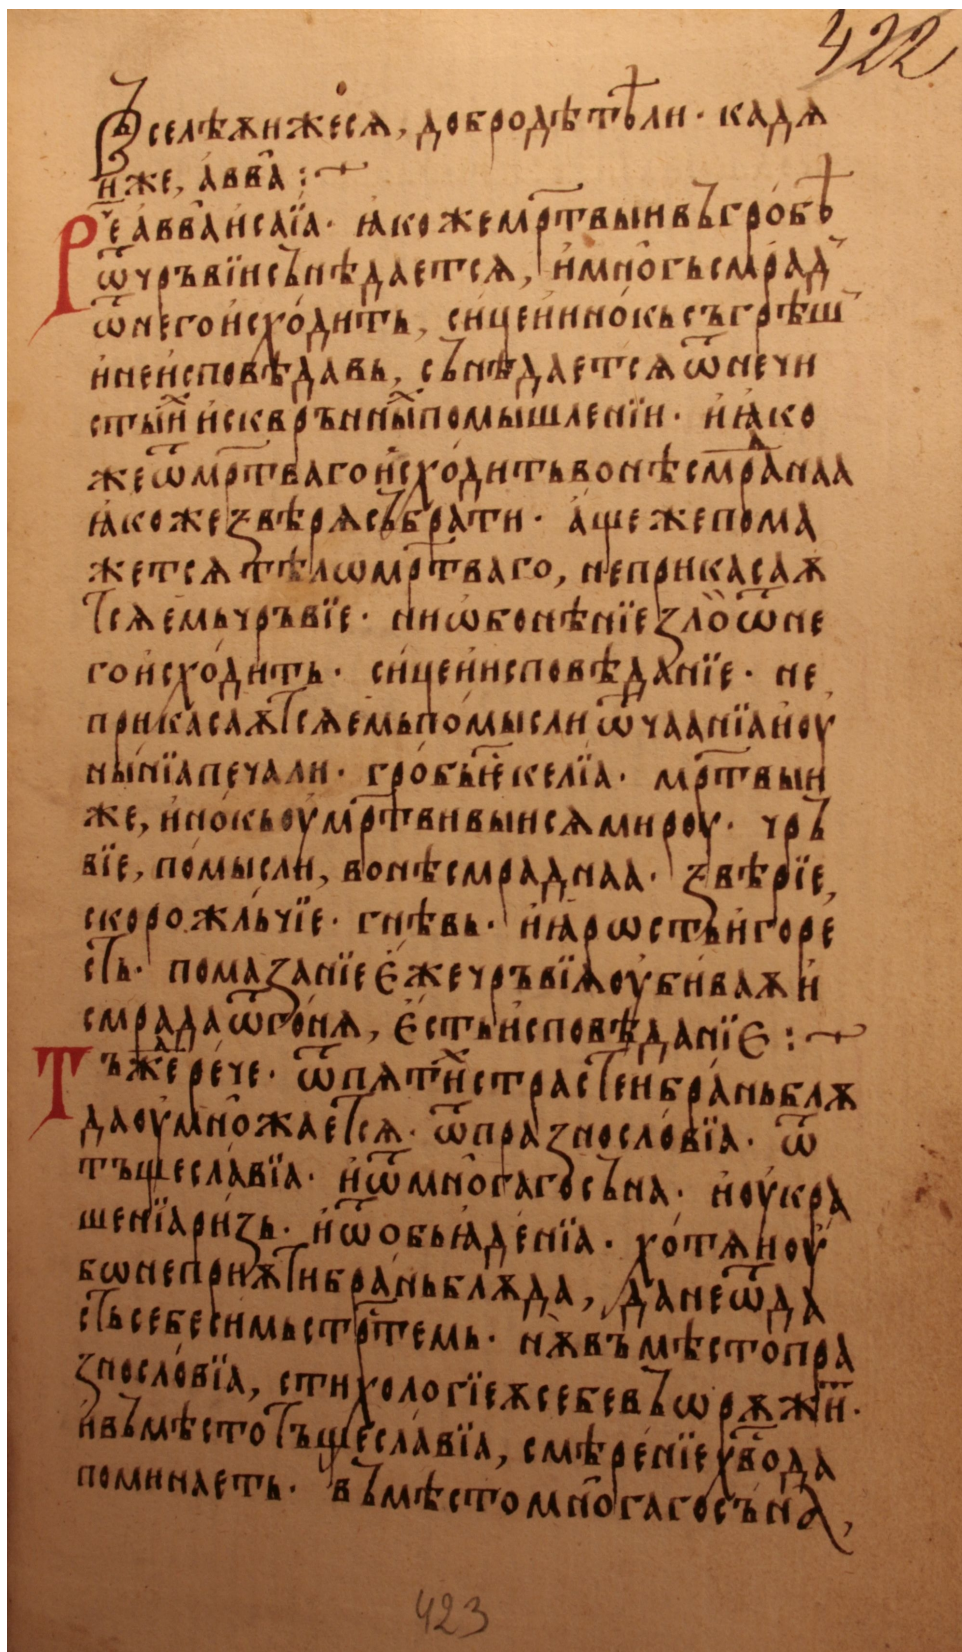 422
Вселѣѫнжеся, добродѣт҄ѣли · кадѧ
и҆же, а҆вва̀ :~
Р е҆ а҆вва̀ и҆саі҆а · ꙗ҆коже мрт҃выи въ гро́бѣ
ѿ чръвїи сънѣдаетсѧ, и҆ мно́гь смра́д
ѿ него и҆схо́дить, си́це и҆ и҆но́кь съгрѣш
и҆ не и҆сповѣдавь, сънѣдаетсѧ ѿ нечи
сты́иⷯ и҆ сквръннꙑⷯ помышленїи · и҆ ꙗ҆ко
же ѿ мрт҃ваго и҆схо́дить вонѣ смра́днаа
ꙗ҆коже ꙁвѣрѧ събрати · а҆ще же пома
жетсѧ тѣлѡ мрт҃ваго, не прикасаѫ
тсѧ емь чръвїе · ни ѡбонѣнїе ꙁло̀ ѿ не
го и҆схо́дить · си́це и҆ и҆сповѣданїе · не
прикасаѫтсѧ емь по́мысли ѿчаанїа и҆ оу
ны́нїа печали · гро́бь е҆ келїа · мрт҃выи
же, и҆но́кь оу҆мрт҃вивыисѧ мироу · чръ
вїе, по́мысли, вонѣ смраднаа · ꙁвѣрїе,
скорожльчїе · гнѣвь · и҆ ꙗ҆рѡсть и҆ горе
сть · помаꙁанїе е҆же чръвїѧ оу҆би́ваѫ и҆
смрада ѿго́нѧ, е҆сть и҆сповѣданїе :~
Тъжⷣе ре́че · ѿ пѧтиⷯ страстеи бра́нь блѫ
да оу҆мно́жаетсѧ · ѿ праꙁнослові́а · ѿ
тъщесла́вїа · и҆ ѿ мно́гаго съна · и҆ оу҆кра
шенїа ри́ꙁь · и҆ ѿ обьꙗ҆де́нїа · хо́тѧи оу҆
бѡ не прїѫти бра́нь блѫда, да не ѿда
сть себе симь стрт҃емь · нѫ̀ въ мѣсто пра
ꙁносло́вїа, стихологїеѫ себе въѡрѫжи́ть ·
и҆ въ мѣсто тъщесла́вїа, смѣре́нїе хв҃о да
поминаеть · въ мѣсто мно́гаго съна̀,
423